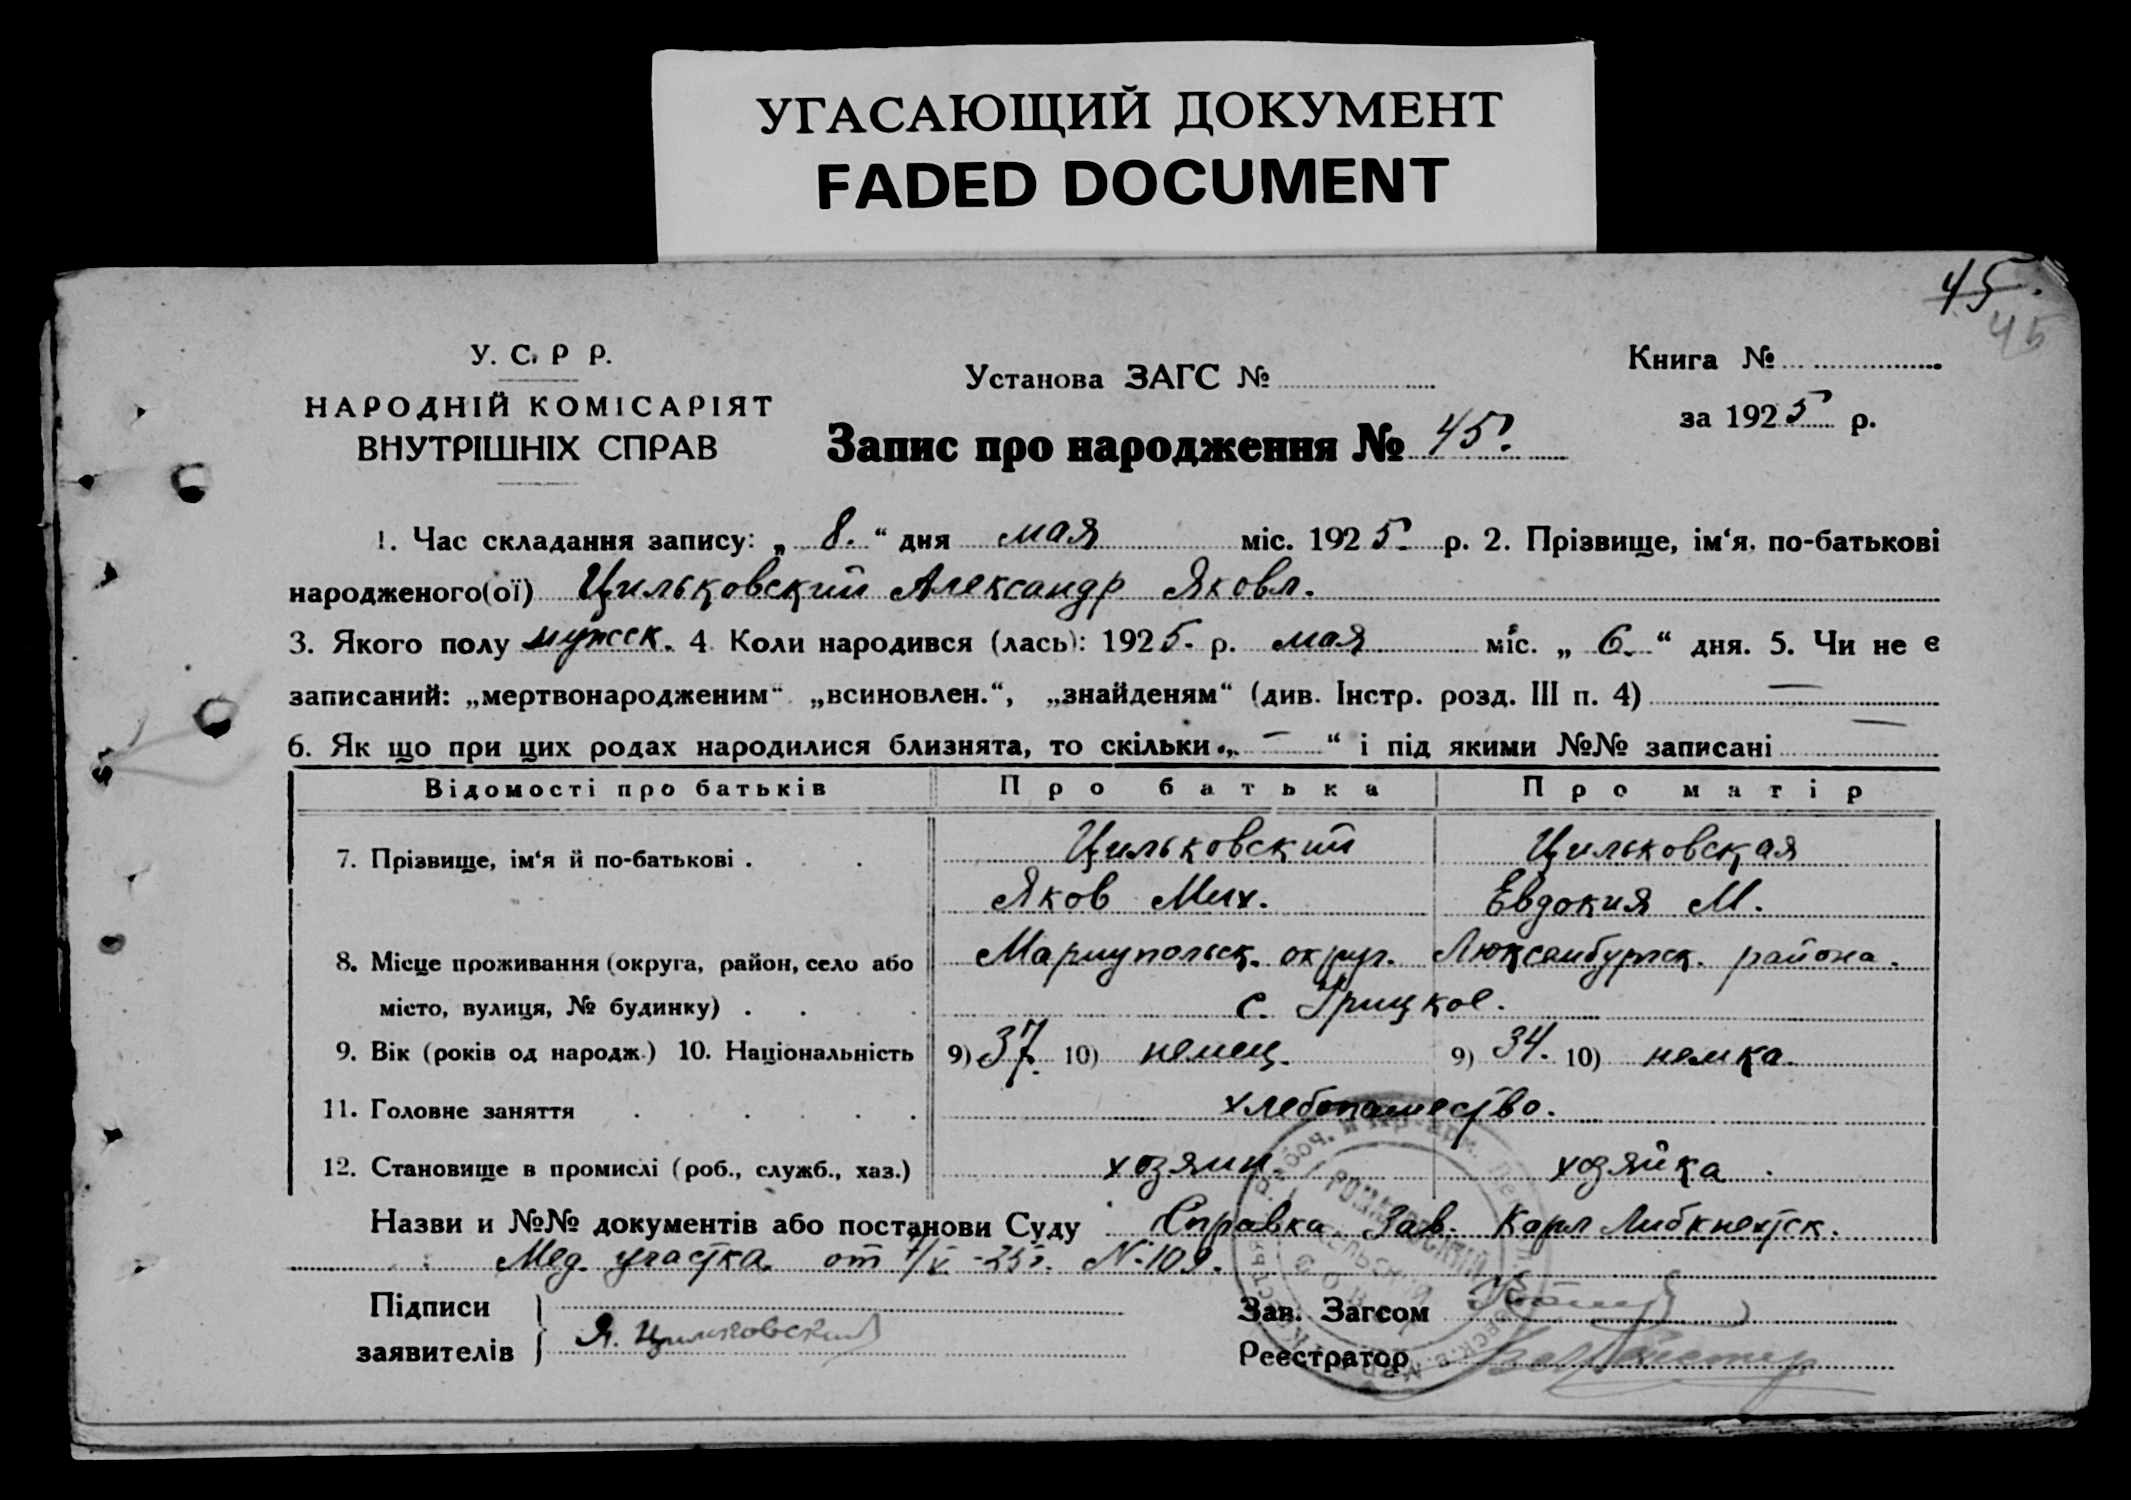 УГАСАЮЩИЙ ДОКУМЕНТ
FADED DOCUMENT
45.
45
У. С. Р Р.
НАРОДНІЙ КОМІСАРІЯТ
ВНУТРІШНІХ СПРАВ
Установа ЗАГС №
Запис про народження № 45.
Книга №
за 1925 р.
1. Час складання запису: „ 8. “ дня мая міс. 1925. р. 2. Прізвище, ім‘я, по-батькові
народженого(ої) Цильковский Александр Яковл.
3. Якого полу мужск. 4. Коли народився (лась): 1925. р. мая міс. „ 6. “ дня. 5. Чи не є
записаний: „мертвонародженим“ „всиновлен.“, „знайденям“ (див. Інстр. розд. III п. 4) —
6. Як що при цих родах народилися близнята, то скільки „ — “ і під якими №№ записані —
Відомості про батьків Про батька Про матір
7. Прізвище, ім‘я й по-батькові . . . Цильковский Цильковская
Яков Мих. Евдокия М.
8. Місце проживання (округа, район, село або Мариупольск. округ. Люксембургск. района.
місто, вулиця, № будинку) . . . . с. Урицкое.
9. Вік (років од народж.) 10. Національність 9) 37. 10) немец. 9) 34. 10) немка.
11. Головне заняття . . . . . . хлебопашество.
12. Становище в промислі (роб., служб., хаз.) хозяин. хозяйка.
Назви и №№ документів або постанови Суду Справка Зав. Карл Либкнехтск.
Мед. участка от 7/V-25г. № 109.
Підписи
заявителів } Я. Цильковский
Зав. Загсом
Реестратор